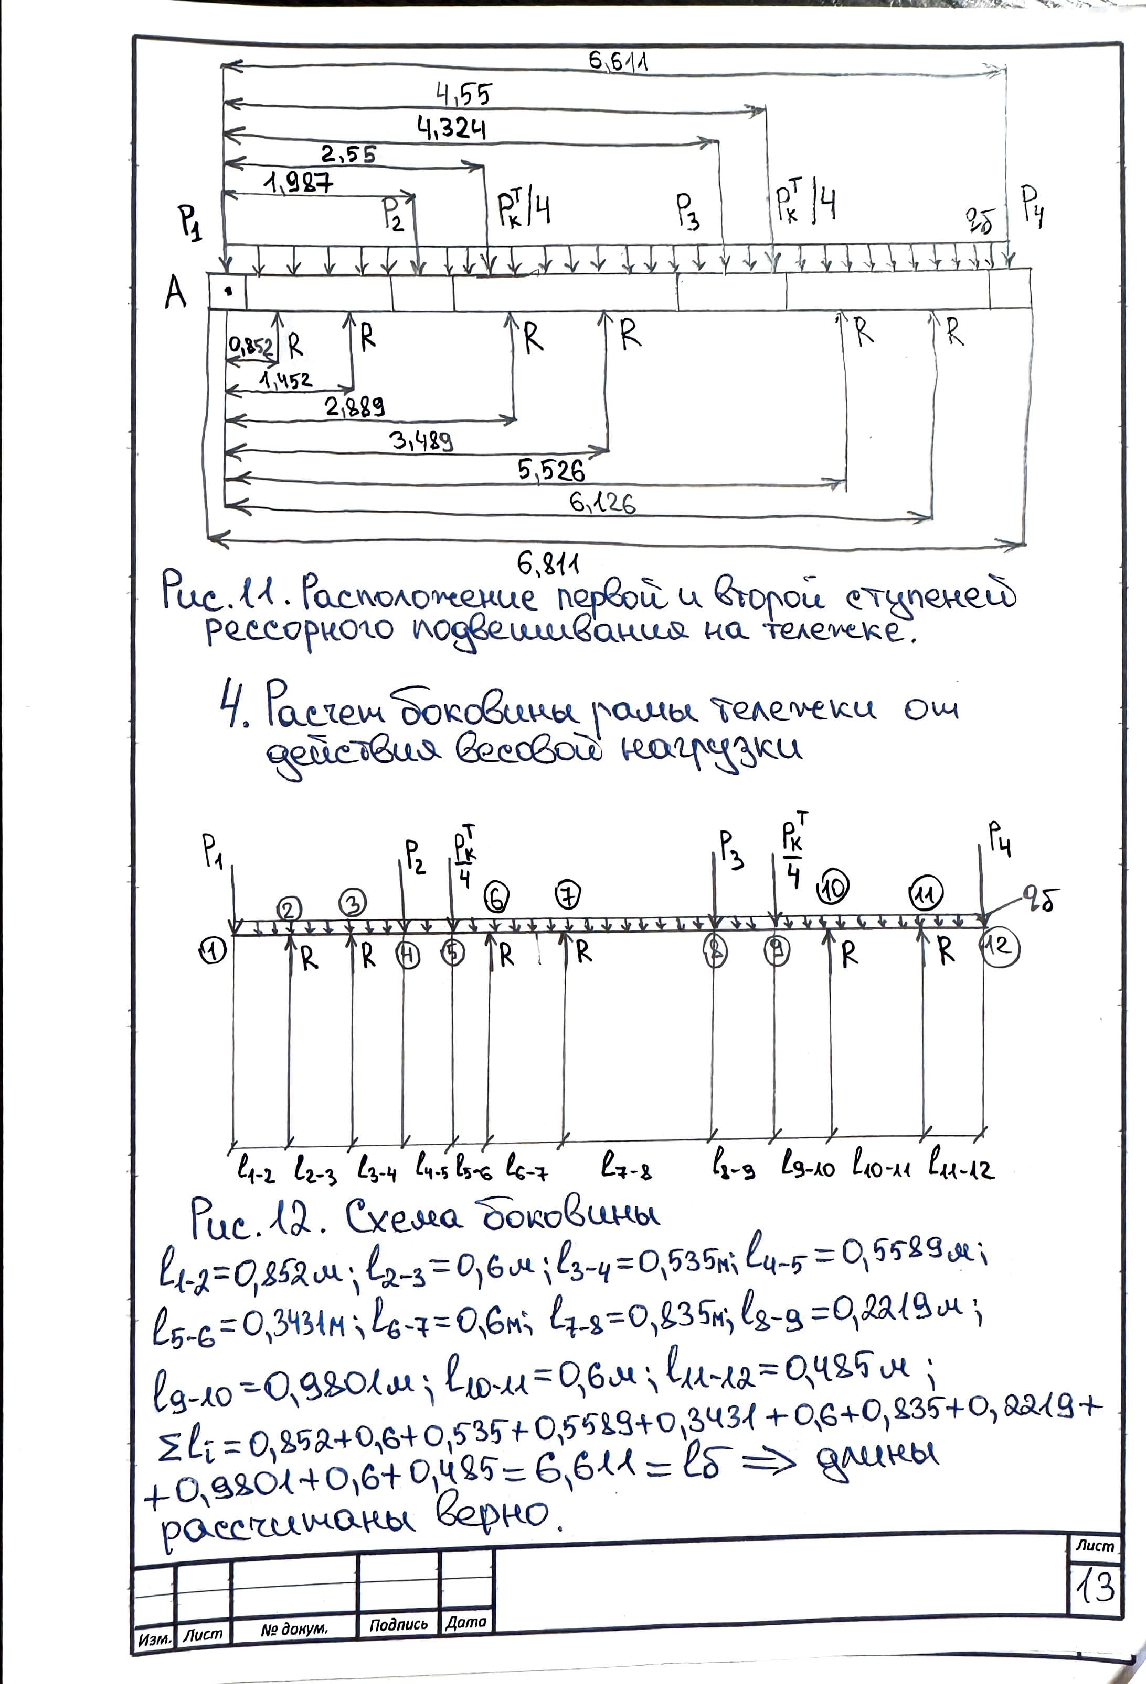 6,611
4,55
4,324
2,55
1,987
P₁
P₂
Pₖᵀ/4
P₃
Pₖᵀ/4
qδ
P₄
A
0,852
R
R
R
R
R
R
1,452
2,889
3,489
5,526
6,126
6,811
Рис.11. Расположение первой и второй ступеней
рессорного подвешивания на тележке.
4. Расчет боковины рамы тележки от
действия весовой нагрузки
P₁
P₂
Pₖᵀ/4
P₃
Pₖᵀ/4
P₄
2
3
6
7
10
11
qδ
1
R
R
4
5
R
R
8
9
R
R
12
l₁₋₂ l₂₋₃ l₃₋₄ l₄₋₅ l₅₋₆ l₆₋₇ l₇₋₈ l₈₋₉ l₉₋₁₀ l₁₀₋₁₁ l₁₁₋₁₂
Рис.12. Схема боковины
l₁₋₂=0,852м; l₂₋₃=0,6м; l₃₋₄=0,535м; l₄₋₅=0,5589м;
l₅₋₆=0,3431м; l₆₋₇=0,6м; l₇₋₈=0,835м; l₈₋₉=0,2219м;
l₉₋₁₀=0,9801м; l₁₀₋₁₁=0,6м; l₁₁₋₁₂=0,485м;
Σlᵢ=0,852+0,6+0,535+0,5589+0,3431+0,6+0,835+0,2219+
+0,9801+0,6+0,485=6,611=lδ ⇒ длины
рассчитаны верно.
Лист
13
Изм. Лист № докум. Подпись Дата